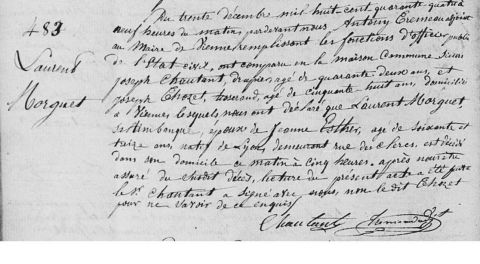 483
Laurent
Morguet
Du trente décembre mil huit cent quarante quatre à
neuf heures du matin pardevant nous Antony Tremeau adjoint
au Maire de Vienne remplissant les fonctions d'officier public
de l'Etat civil, ont comparu en la maison Commune
joseph Chautant drapier, agé de quarante deux ans, et
joseph Chozet, tisserand, agé de cinquante huit ans, domiciliés
à Vienne lesquels nous ont déclaré que Laurent Morguet
époux de Jeanne Esther, agé de soixante et
ans natif de Lyon, demeurant rue des Clercs, est décédé
dans son domicile ce matin à cinq heures. après nous être
assuré du dudit décès, lecture du présent acte a été faite
le Sr. Chautant a signé avec nous, non ledit Chozet
pour ne savoir de ce enquis
Chautant